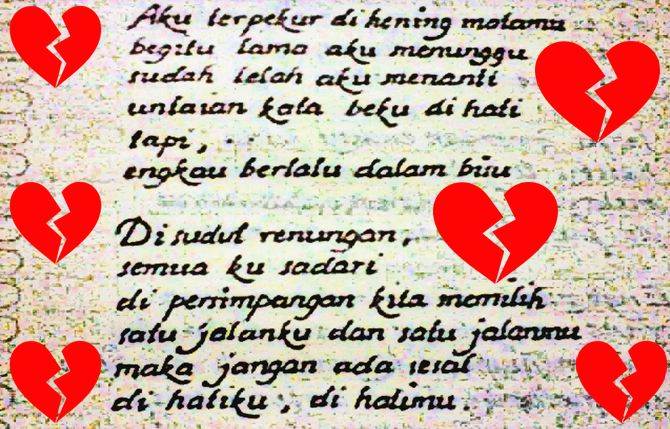 Aku terpekur di hening matamu
begitu lama aku menunggu
sudah lelah aku menanti
untaian kata beku di hati
tapi,
engkau berlalu dalam bisu
Di sudut renungan,
semua ku sadari
di persimpangan kita memilih
satu jalanku dan satu jalanmu
maka jangan ada sesal
di hatiku, di hatimu.